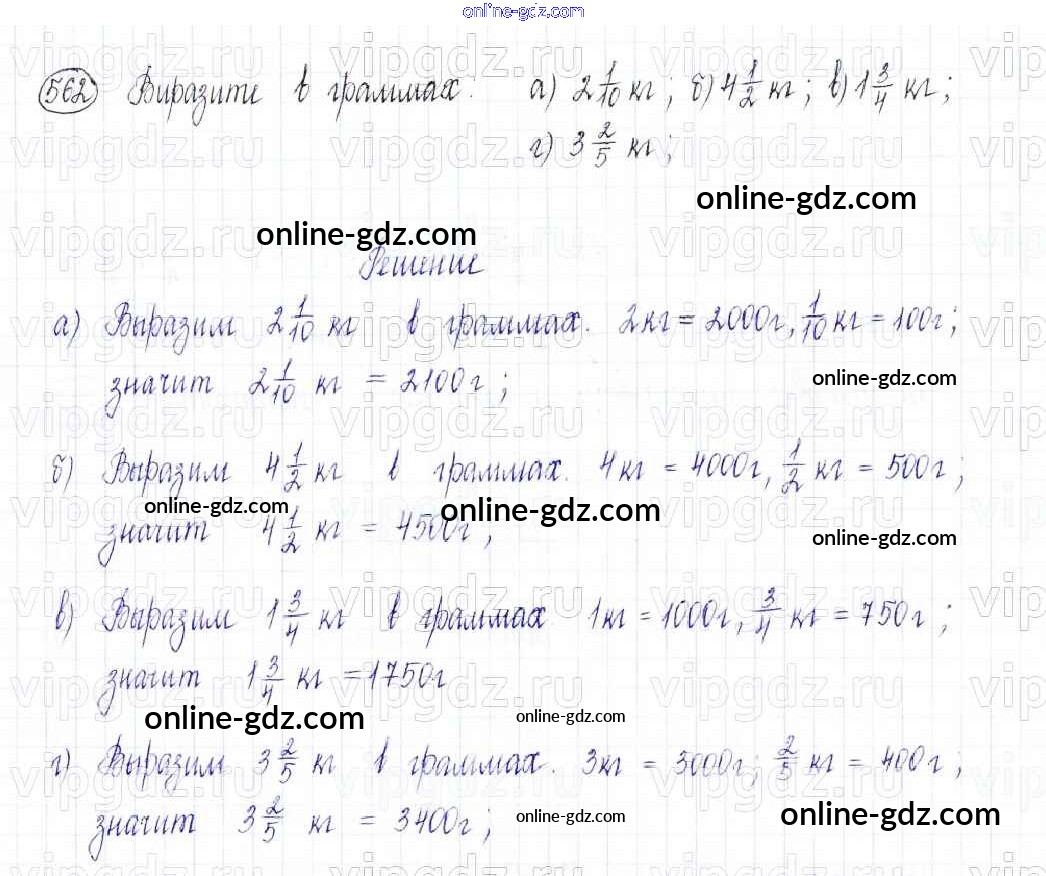 online-gdz.com
562 Выразите в граммах: а) 2 1/10 кг; б) 4 1/2 кг; в) 1 3/4 кг;
г) 3 2/5 кг;
online-gdz.com
online-gdz.com
Решение
а) Выразим 2 1/10 кг в граммах. 2кг = 2000г, 1/10 кг = 100г;
значит 2 1/10 кг = 2100г;
online-gdz.com
б) Выразим 4 1/2 кг в граммах. 4кг = 4000г, 1/2 кг = 500г;
online-gdz.com
online-gdz.com
значит 4 1/2 кг = 4500г;
online-gdz.com
в) Выразим 1 3/4 кг в граммах 1кг = 1000г, 3/4 кг = 750г;
значит 1 3/4 кг = 1750г
online-gdz.com
online-gdz.com
г) Выразим 3 2/5 кг в граммах. 3кг = 3000г; 2/5 кг = 400г;
значит 3 2/5 кг = 3400г;
online-gdz.com
online-gdz.com
vipgdz.ru